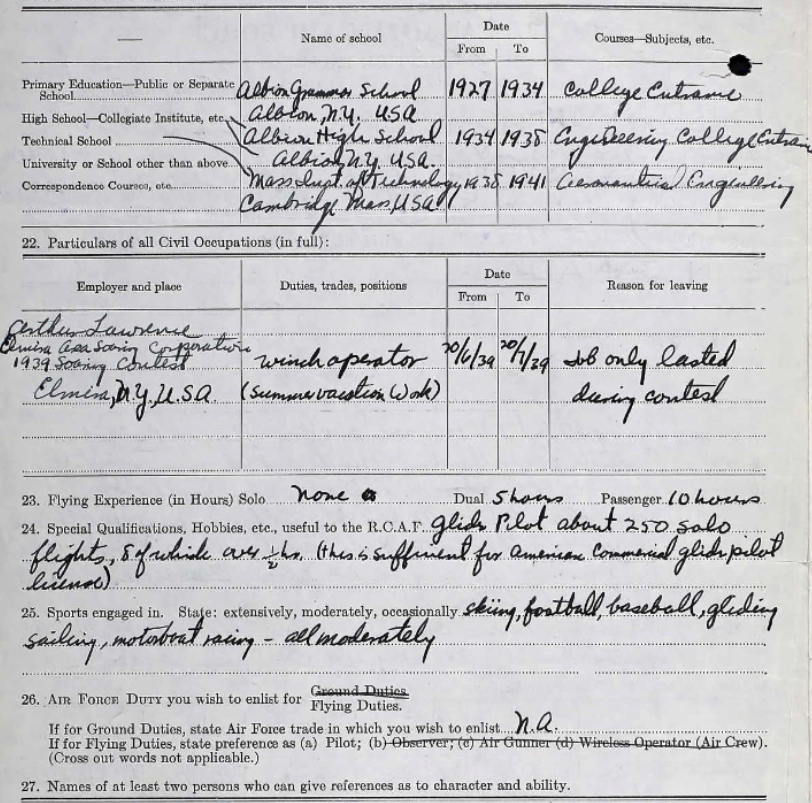 Name of school Date Courses—Subjects, etc.
From To
Primary Education—Public or Separate School Albion Grammar School 1927 1934 College Entrance
High School—Collegiate Institute, etc. Albion, N.Y. USA
Technical School Albion High School 1934 1938 Engineering College Entran
University or School other than above Albion, N.Y. USA.
Correspondence Courses, etc. Mass Inst of Technology 1938 1941 Aeronautical Engineering
Cambridge Mass, USA
22. Particulars of all Civil Occupations (in full):
Employer and place Duties, trades, positions Date Reason for leaving
From To
Arthur Lawrence
Elmira Area Soaring Corporation
1939 Soaring Contest winch operator 20/6/39 20/7/39 Job only lasted
Elmira, N.Y., U.S.A. (Summer vacation Work) during contest
23. Flying Experience (in Hours) Solo None Dual 5 hours Passenger 10 hours
24. Special Qualifications, Hobbies, etc., useful to the R.C.A.F. Glide Pilot about 250 solo
flights, 8 of which over ½ hr. (this is sufficient for American Commercial glide pilot
license)
25. Sports engaged in. State: extensively, moderately, occasionally skiing, football, baseball, gliding
sailing, motorboat racing - all moderately
26. AIR FORCE DUTY you wish to enlist for Ground Duties.
Flying Duties.
If for Ground Duties, state Air Force trade in which you wish to enlist N.A.
If for Flying Duties, state preference as (a) Pilot; (b) Observer; (c) Air Gunner (d) Wireless Operator (Air Crew).
(Cross out words not applicable.)
27. Names of at least two persons who can give references as to character and ability.